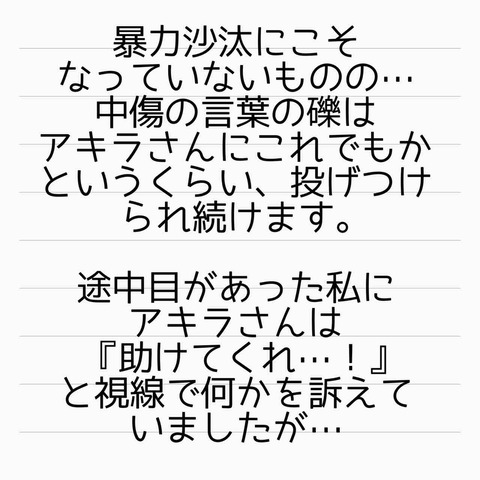 暴力沙汰にこそ
なっていないものの…
中傷の言葉の礫は
アキラさんにこれでもか
というくらい、投げつけ
られ続けます。
途中目があった私に
アキラさんは
『助けてくれ…！』
と視線で何かを訴えて
いましたが…